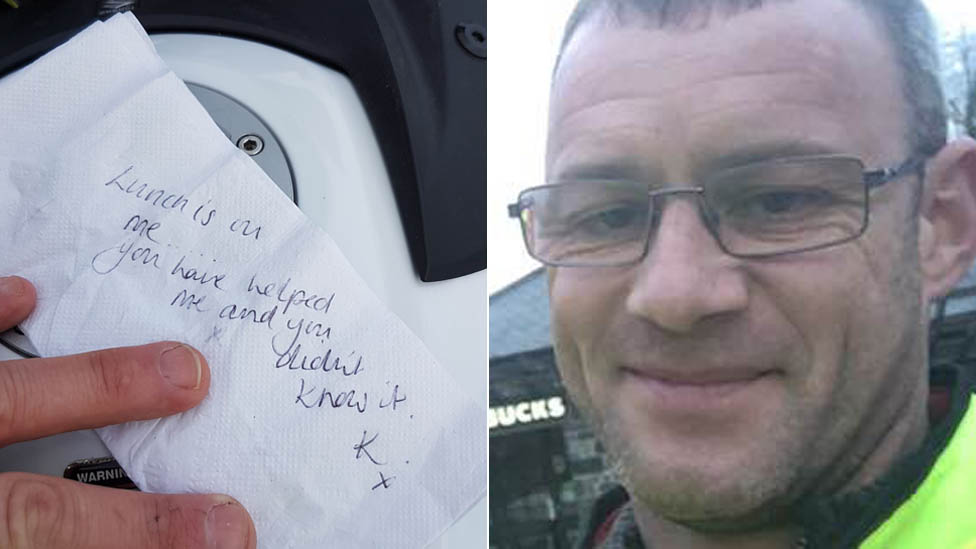 Lunch is on
me
you have helped
me and you
x
didn't
know it.
K.
x
WARNIN
BUCKS